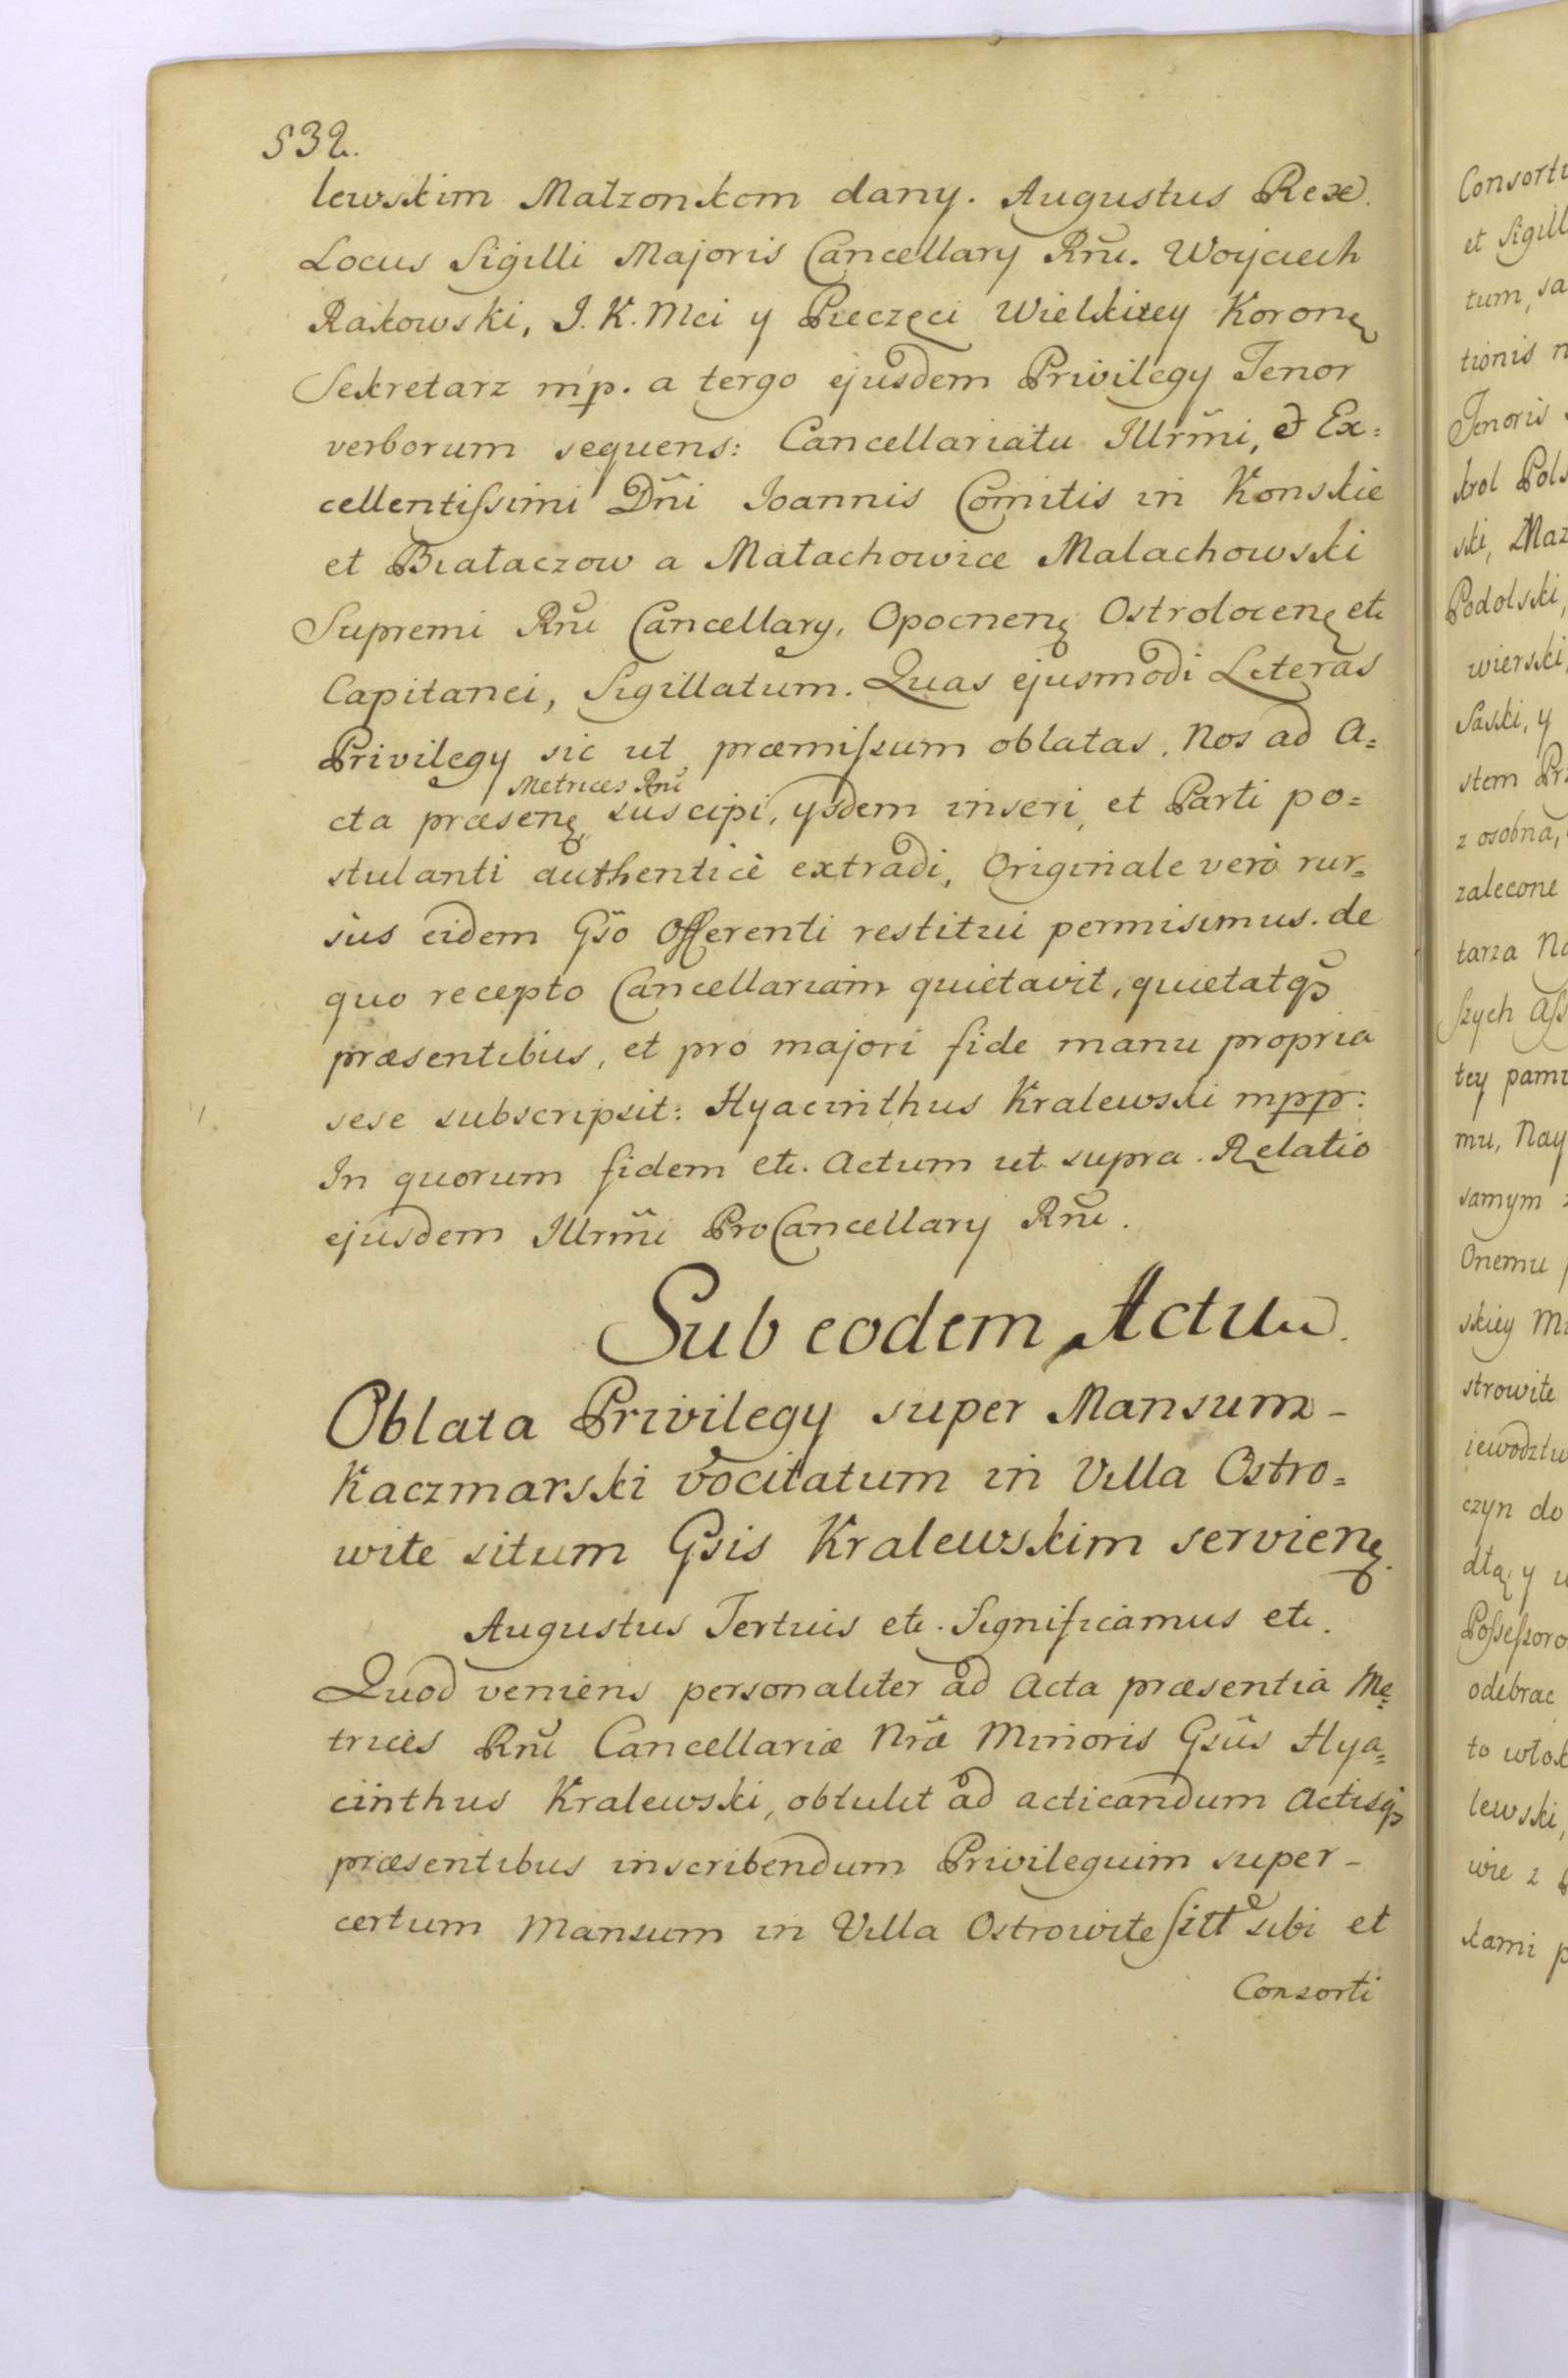 532.
lewskim Małzonkom dany. Augustus Rex.
Locus Sigilli Majoris Cancellary Rñi. Woyciech
Rakowski, J. K. Mci y Pieczęci Wielkiey Koronę
Sekretarz mp. a tergo ejusdem Privilegy Tenor
verborum sequens: Cancellariatu Illrm̃i, & Ex=
cellentiſsimi Dñi Joannis Comitis in Konskie
et Białaczow a Małachowice Małachowski
Supremi Rñi Cancellary, Opocnenę Ostrolocenę etc
Capitanei, Sigillatum. Quas ejusmodi Literas
Privilegy sic ut præmiſsum oblatas, Nos ad A=
Metrices Rñi
cta præsenę suscipi, ysdem inseri, et Parti po=
stulanti authenticè extradi, Originale verò rur=
sùs eidem Gs̃o Offerenti restitui permisimus. de
quo recepto Cancellariam quietavit, quietatqꝫ
præsentibus, et pro majori fide manu propria
sese subscripsit: Hyacinthus Kralewski mpp:
In quorum fidem etc. Actum ut supra. Relatio
ejusdem Illrm̃i ProCancellary Rñi.
Sub eodem Actu.
Oblata Privilegy super Mansum -
Kaczmarski vocitatum in Villa Ostro=
wite situm Gsis Kralewskim servienę.
Augustus Tertius etc. Significamus etc.
Quod veniens personaliter ad Acta præsentia Me=
trices Rñi Cancellariæ Nrã Minoris Gsũs Hya=
cinthus Kralewski, obtulit ad acticandum Actisqꝫ
præsentibus inscribendum Privilegium super -
certum Mansum in Villa Ostrowite sibi et
Consorti
Consorti
et Sigill
tum, sa
tionis n
Tenoris
krol Pols
ski, Maz
Podolski,
wierski,
Saski, y
stem Pr
z osobna,
zalecone
tarza Na
szych Aſs
tey pami
mu, Nay
samym
Onemu
skiey M
strowite
iewodztw
czyn do
dłą, y u
Poſseſsoro
odebrac
to włok
lewski,
wie z
kami p